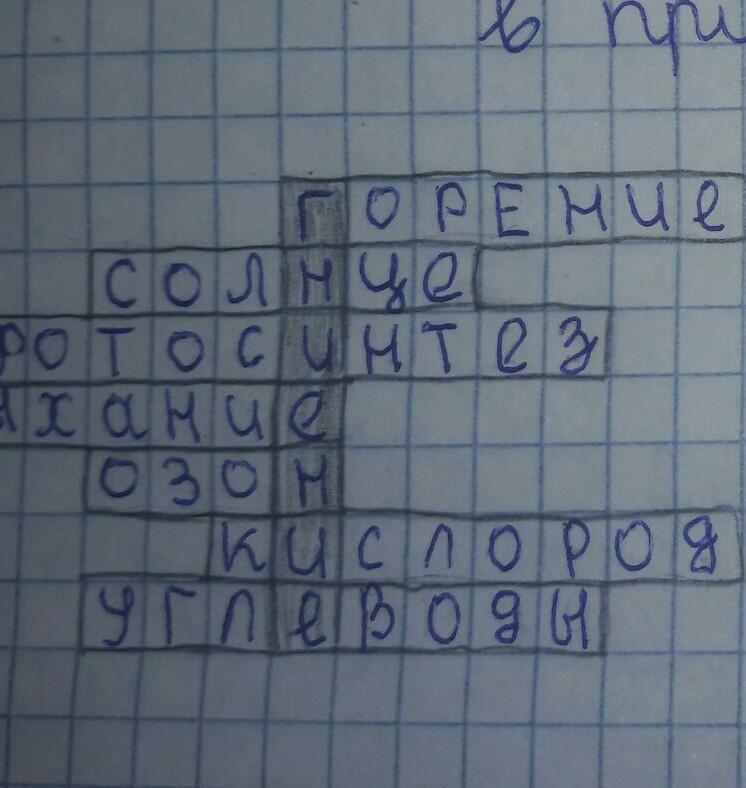 в при
ГОРЕНИе
СОЛНЦе
РОТОСИНТез
ыхание
ОЗОН
КИСЛОРОд
УГЛеВОды